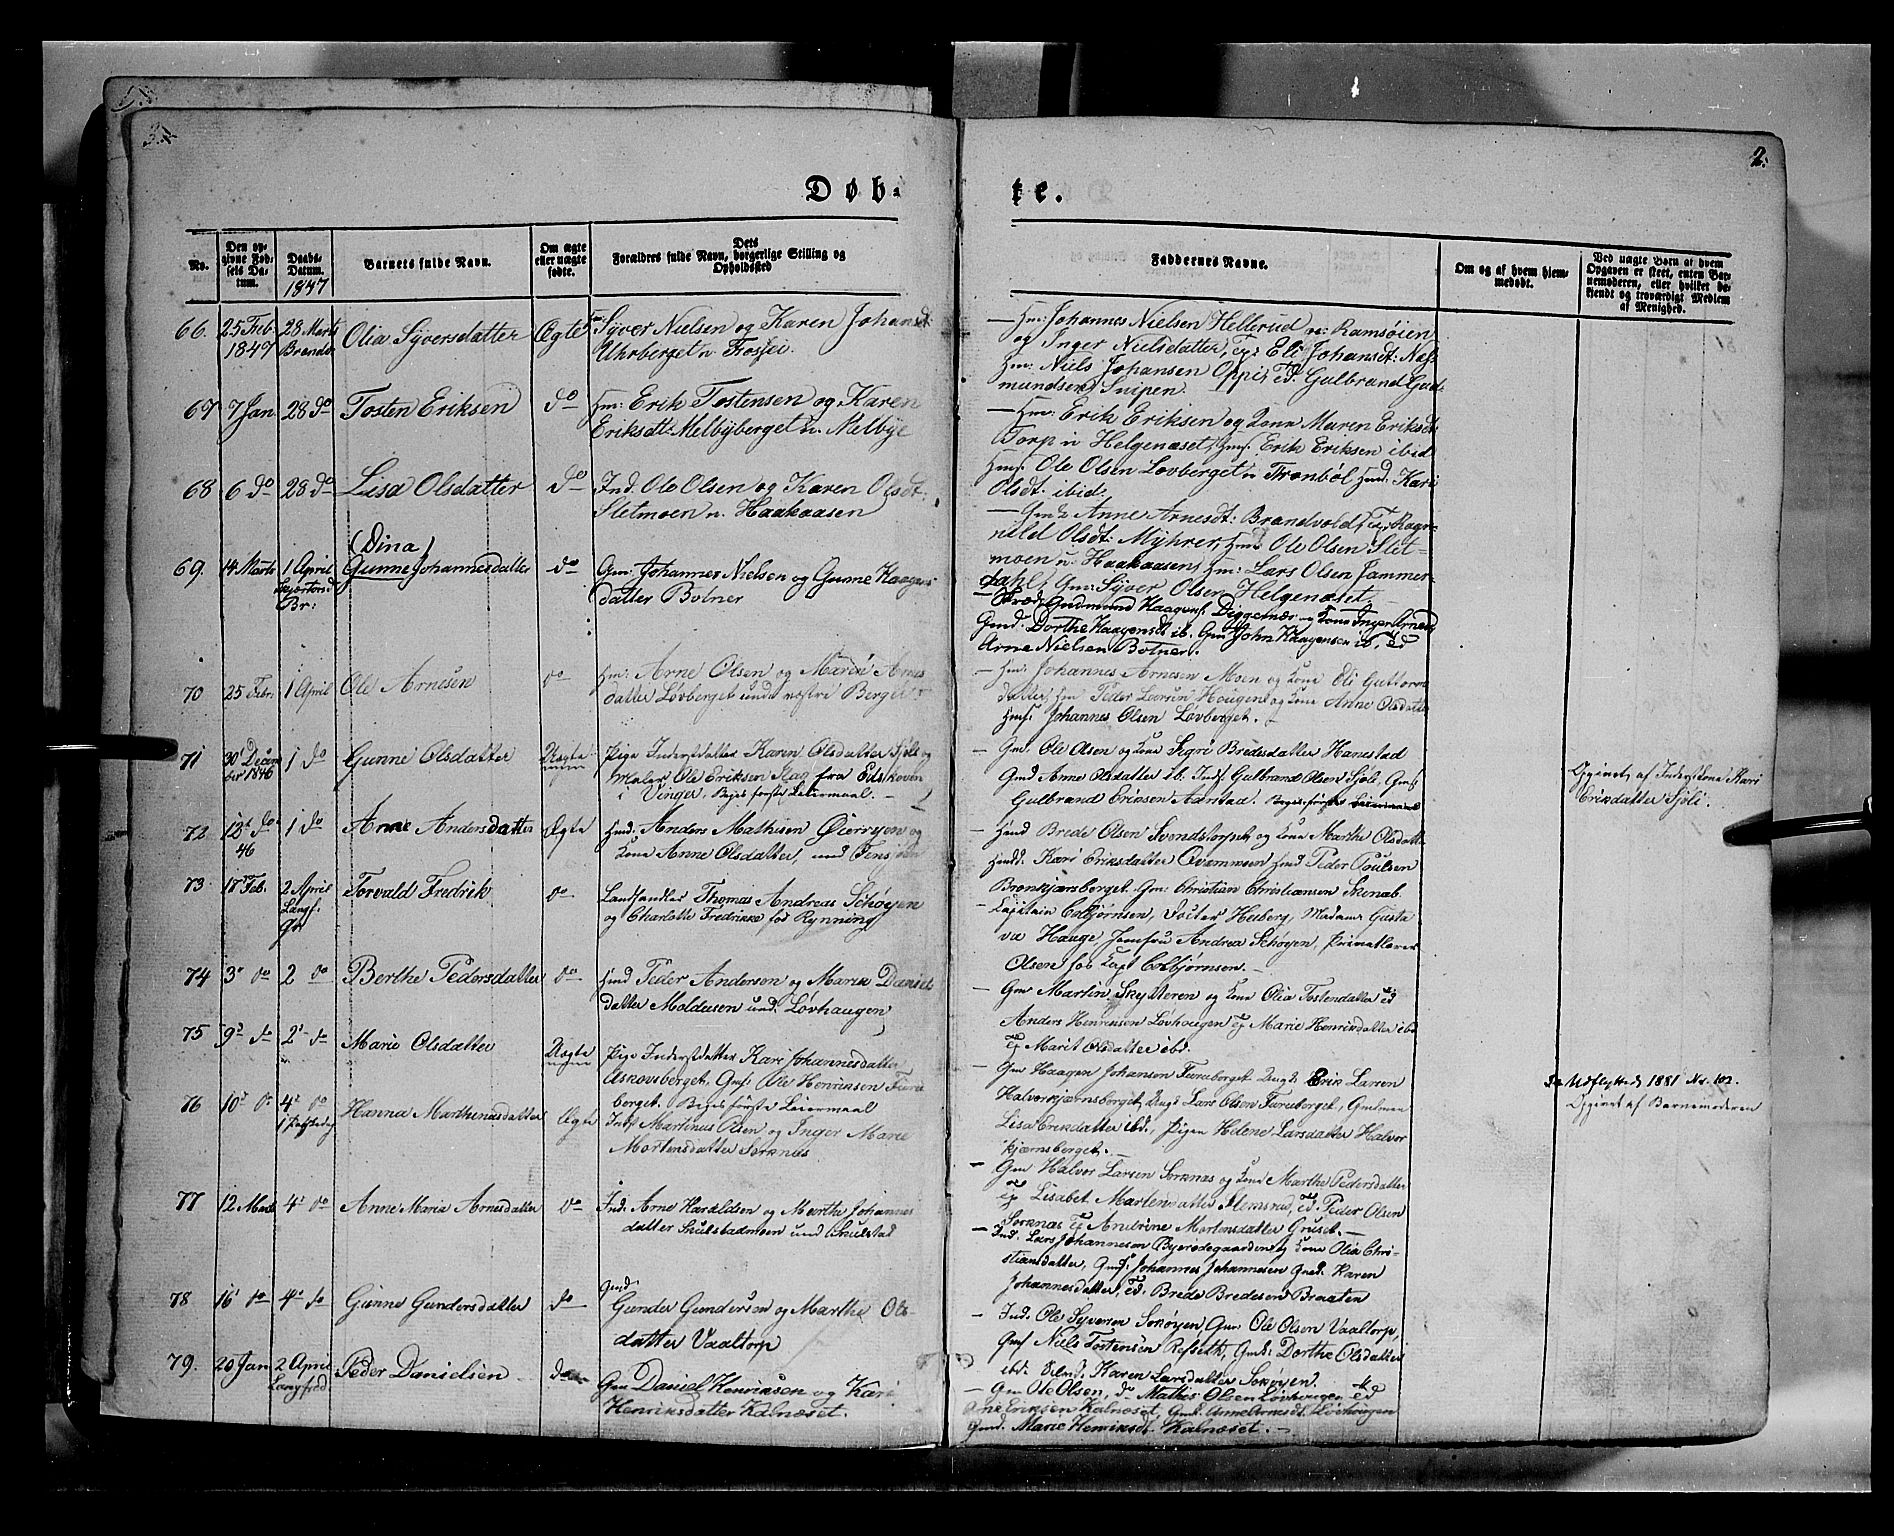 2.
Døb-
te.
No.
Den op-
givne Fød-
sels Da-
tum.
Daabs-
Datum.
1847
Barnets fulde Navn.
Om ægte
eller uægte
fødte.
Dets
Forældres fulde Navn, borgerlige Stilling og
Opholdsted
Faddernes Navne.
Om og af hvem hjem-
medøbt.
Ved uægte Børn af hvem
Opgaven er skeet, enten Bar-
nemoderen, eller hvilket be-
kjendt og troværdigt Medlem
af Menighed.
66. 25 Feb 28 Marts Olia Syversdatter Ægte Syver Nielsen og Karen Johansd
1847 Brandv. Uhrberget u. Fossei.
— Hm: Johannes Nielsen Hellerud u: Ramsøien
og Inger Nielsdatter, Eli Johansdt:
Hm: Niels Johansen Oppi, Ed. Gulbrand Gud-
mundsen Snipen.
67 7 Jan 28 do Tosten Eriksen do Hm: Erik Tostensen og Karen
Eriksdt: Melbyberget u. Melbye
— Hm: Erik Eriksen og Kone Maren Eriksdt:
Torp u Helgenæset, Hmf. Erik Eriksen ibid
Hmf. Ole Olsen Lovberget u Trønbøl Hmd. Kari
Olsdt. ibid.
68 6 do 28 do Lisa Olsdatter do Ind. Ole Olsen og Karen Olsdt:
Sletmoen u. Haakaasen
— Anne Arnesdt: Brandvold, Ragn-
nild Olsdt: Myhrer, Hmf. Ole Olsen Slet-
moen u. Haakaasen, Hm: Lars Olsen Jammer-
dahl, Gm: Syver Olsen Helgenæset,
(Dina)
69. 14 Marts 1 April Gunne Johannesdatter do Gm: Johannes Nielsen og Gunne Haagens
Skjærtorsd datter Botner
Br:
Gudmund Haagens. Diggernæs og Kone Inger Arnesd
Gmd. Dorthe Haagensdt ib. Gm: John Haagensen ib.
Arne Nielsen Botner.
70 25 Febr. 1 April Ole Arnesen do Hm: Arne Olsen og Marie Arnes
datter Løvberget under vestre Berger
— Hm: Johannes Arnesen Moen og Kone Eli Guttorm
datter, Hm Peder Larsen Hougen og Kone Anne Olsdatter
Hmf. Johannes Olsen Løvberget.
71 30' Decem 1 do Gunne Olsdatter Uægte Pige Inderstdatter Karen Olsdatter Sjøli og
ber 1846 Maler Ole Eriksen Stag fra Eidskoven
i Vinger. Begges første Leiermaal. —
— Gm. Ole Olsen og Kone Segri Bredesdatter Hanestad
Gmd Anne Olsdatter ib. Indf. Gulbrand Olsen Sjøli, Gmf
Gulbrand Eriksen Aanstad.
Opgivet af Inderst Kone Kari
Eriksdatter Sjøli.
72 12t do 1 do Anne Andersdatter Ægte Hmd. Anders Mathisen Øierryen og
46 Kone Anne Olsdatter, und
Hmd Brede Olsen Svendstorpet og Kone Marthe Olsdatt
Kari Eriksdatter Qvammoen Hmd Peder Poulsen
Bronkjærsberget. Gm: Christian Christiansen Skinab
73. 17 Feb. 2 April Torvald Fredrik do Landhandler Thomas Andreas Schøyen
Langf. og Charlotte Fredrikke fød Rynning
Gr:
— Kapitain Colbjørnsen, Docter Heiberg, Madame Gusta
va Hauge, Jomfru Andrea Schøyen, Privatlærer
Olsen hos Kapt Colbjørnsen. —
74 3' do 2 do Berthe Pedersdatter do Hmd Peder Andersen og Maria Daniels
datter Moldusen und. Løvhaugen
— Gm Martin Skysteren og Kone Olia Tostendatter Ed
Anders Henriksen Løvhaugen Ep Marie Henriksdatter ibd
Ep Marit Olsdatter ibd.
75 9' do 2' do Marie Olsdatter Uægte Pige Inderstdatter Kari Johannesdatter
Askovsberget, Gmf. Ole Henriksen Fure
berget. Begges første Leiermaal
— Gm Haagen Johansen Fureberget Erik Larsen
Halvorkjærnsberget, Lars Olsen Fureberget, Gmdmoe
Lisa Eriksdatter ibd., Pigen Helene Larsdatter Halvor
kjærnsberget. —
Udflytted 1881 Nr. 102.
Opgivet af Barnemoderen
76 10' do 4' do Hanna Marthenusdatter Ægte Indf Martinus Olsen og Inger Marie
1 Paaskedag Mortensdatter Sorknæs
— Gm Halvor Larsen Sorknæs og Kone Marthe Pedersdatter
Ep Lisabet Martendatter Stensrud, Ed Peder Olsen
Sorknæs Ep Andrine Mortensdatter Gruset. —
77 12 Marts 4' do Anne Maria Arnesdatter do Ind. Arne Haraldsen og Marthe Johannes
datter Skulstadmoen und Skulstad
— Ind. Lars Johannesen Byerødegaarden og Kone Olia Chri-
stiansdatter, Gmf. Johannes Johannesen Gmd. Karen
Johannesdatter, Ed. Brede Bredesen Braaten
78 16' do 4' do Gunne Gundersdatter do Gmd:
Gunder Gundersen og Marthe Ols-
datter Vaaltorp
— Ind. Ole Syversen Sorøyen Gm. Ole Olsen Vaaltorp,
Gmf Niels Tostensen Refseth, Gmd. Dorthe Olsdatter
ibd. Karen Larsdatter Sorøyen.
79. 20 Jan 2 April Peder Danielsen do Gm Daniel Henriksen og Kari
Langfred Henriksdatter Kalnæset.
— Gm Ole Olsen, do Mathis Olsen Løvhougen Ed
Arne Eriksen Kalnæset, Gmd. Anne Arnesdt Løvhougen
Gmd. Marie Henriksdt Kalnæset. —